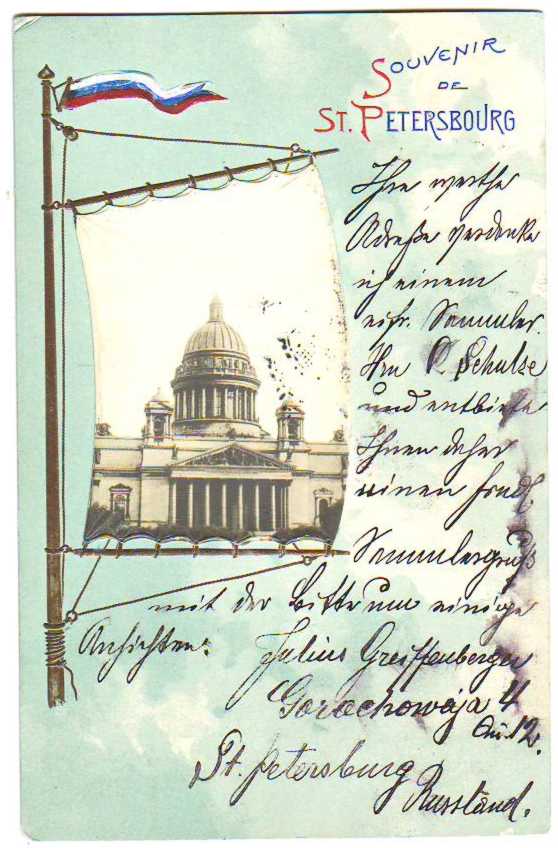 SOUVENIR
DE
ST. PETERSBOURG
Ihre werthe
Adreße verdanke
ich einem
eifr. Sammler
Hrn R. Schulze
und entbiete
Ihnen daher
einen frndl.
Sammlergruß
mit der Bitte um einige
Ansichten.
Julius Greiffenberger
Gorochowaja 4
Qu. 12.
St. Petersburg
Russland.